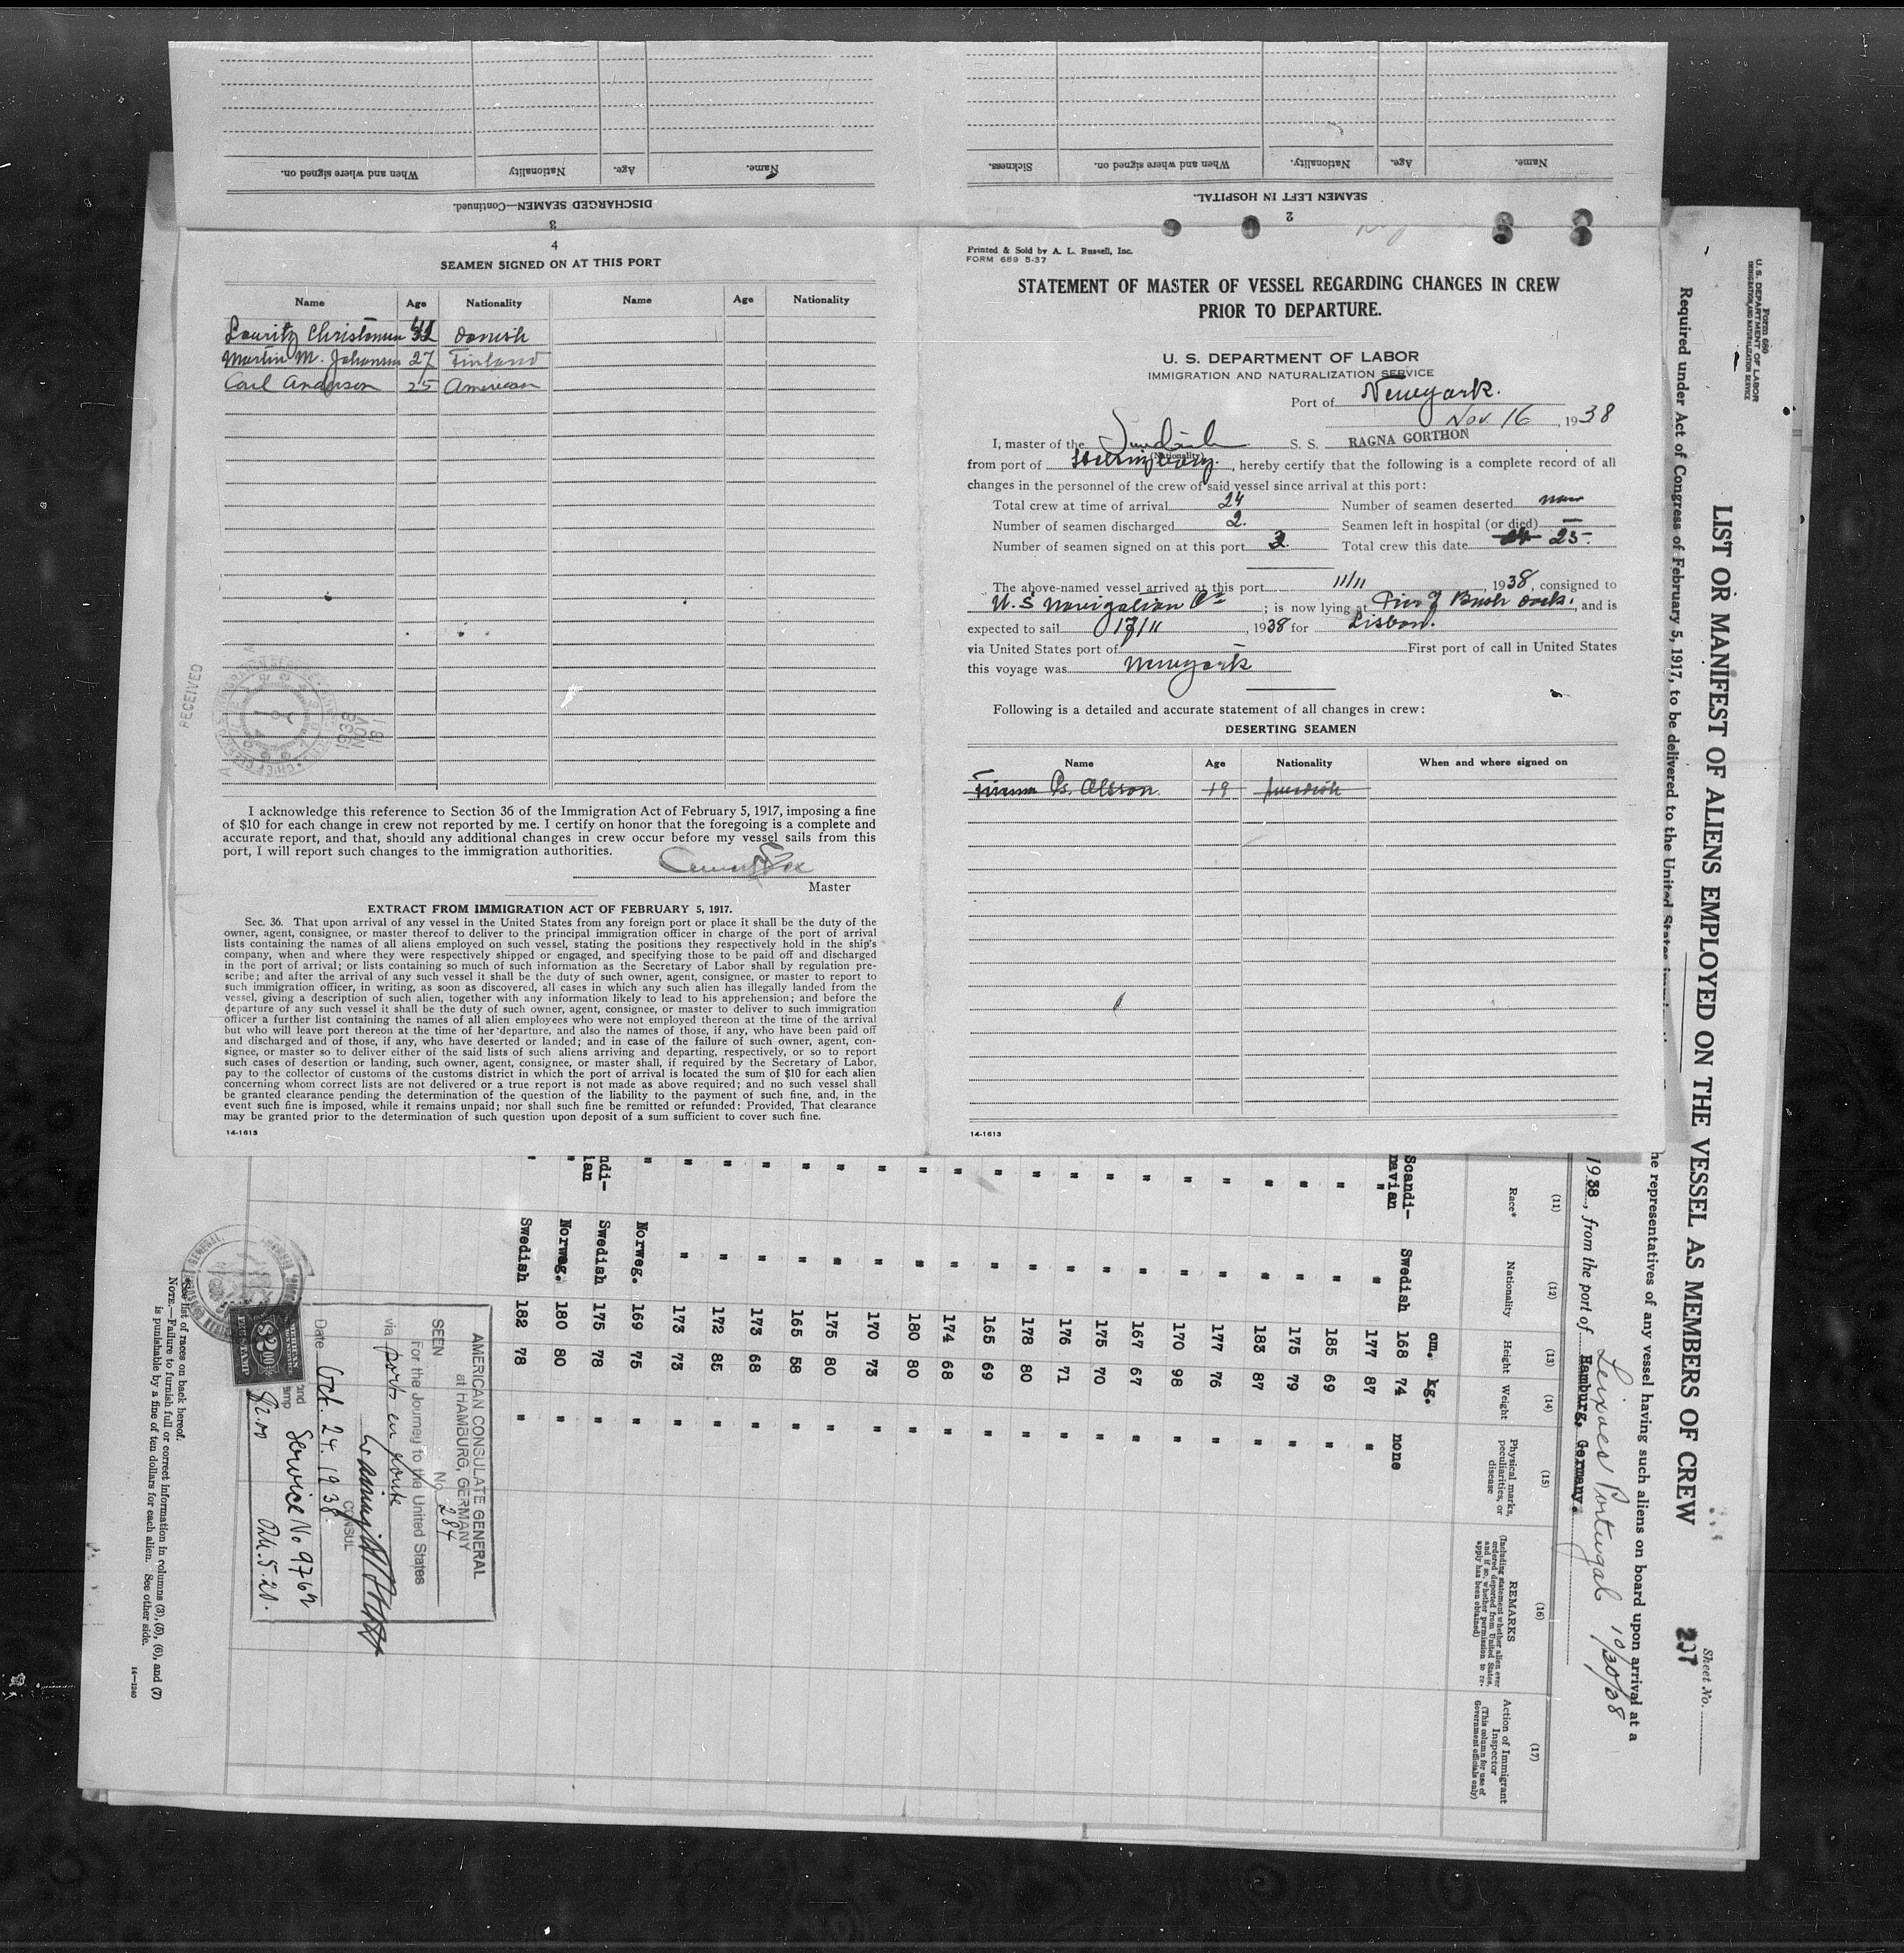 When and where signed on.
Nationality
Age.
Name.
DISCHARGED SEAMEN—Continued.
3
Sickness.
When and where signed on.
Nationality.
Age.
Name.
SEAMEN LEFT IN HOSPITAL.
2
4
SEAMEN SIGNED ON AT THIS PORT
Name Age Nationality Name Age Nationality
Lauritz Christensen Danish
Martin M. Johansen 27 Finland
Carl Anderson 25 American
RECEIVED
1938 NOV 18
I acknowledge this reference to Section 36 of the Immigration Act of February 5, 1917, imposing a fine
of $10 for each change in crew not reported by me. I certify on honor that the foregoing is a complete and
accurate report, and that, should any additional changes in crew occur before my vessel sails from this
port, I will report such changes to the immigration authorities.
Master
EXTRACT FROM IMMIGRATION ACT OF FEBRUARY 5, 1917.
Sec. 36. That upon arrival of any vessel in the United States from any foreign port or place it shall be the duty of the
owner, agent, consignee, or master thereof to deliver to the principal immigration officer in charge of the port of arrival
lists containing the names of all aliens employed on such vessel, stating the positions they respectively hold in the ship's
company, when and where they were respectively shipped or engaged, and specifying those to be paid off and discharged
in the port of arrival; or lists containing so much of such information as the Secretary of Labor shall by regulation pre-
scribe; and after the arrival of any such vessel it shall be the duty of such owner, agent, consignee, or master to report to
such immigration officer, in writing, as soon as discovered, all cases in which any such alien has illegally landed from the
vessel, giving a description of such alien, together with any information likely to lead to his apprehension; and before the
departure of any such vessel it shall be the duty of such owner, agent, consignee, or master to deliver to such immigration
officer a further list containing the names of all alien employees who were not employed thereon at the time of the arrival
but who will leave port thereon at the time of her departure, and also the names of those, if any, who have been paid off
and discharged and of those, if any, who have deserted or landed; and in case of the failure of such owner, agent, con-
signee, or master so to deliver either of the said lists of such aliens arriving and departing, respectively, or so to report
such cases of desertion or landing, such owner, agent, consignee, or master shall, if required by the Secretary of Labor,
pay to the collector of customs of the customs district in which the port of arrival is located the sum of $10 for each alien
concerning whom correct lists are not delivered or a true report is not made as above required; and no such vessel shall
be granted clearance pending the determination of the question of the liability to the payment of such fine, and, in the
event such fine is imposed, while it remains unpaid; nor shall such fine be remitted or refunded: Provided, That clearance
may be granted prior to the determination of such question upon deposit of a sum sufficient to cover such fine.
14-1613
Printed & Sold by A. L. Russell, Inc.
FORM 689 5-37
STATEMENT OF MASTER OF VESSEL REGARDING CHANGES IN CREW
PRIOR TO DEPARTURE.
U. S. DEPARTMENT OF LABOR
IMMIGRATION AND NATURALIZATION SERVICE
Port of Newyork.
Nov. 16, 1938
I, master of the Swedish S. S. RAGNA GORTHON
(Nationality)
from port of Helsingborg, hereby certify that the following is a complete record of all
changes in the personnel of the crew of said vessel since arrival at this port:
Total crew at time of arrival 24 Number of seamen deserted none
Number of seamen discharged 2. Seamen left in hospital (or died) —
Number of seamen signed on at this port 3. Total crew this date 24 25-
The above-named vessel arrived at this port 11/11, 1938, consigned to
U. S Navigation Co; is now lying at Pier 7 Bush Dock., and is
expected to sail 17/11, 1938 for Lisbon.
via United States port of — First port of call in United States
this voyage was Newyork
Following is a detailed and accurate statement of all changes in crew:
DESERTING SEAMEN
Name Age Nationality When and where signed on
B. Olsson. 19 Swedish
14-1613
Form 680
U. S. DEPARTMENT OF LABOR
IMMIGRATION AND NATURALIZATION SERVICE
LIST OR MANIFEST OF ALIENS EMPLOYED ON THE VESSEL AS MEMBERS OF CREW
Sheet No.
207
Required under Act of Congress of February 5, 1917, to be delivered to the United States
he representatives of any vessel having such aliens on board upon arrival at a
1938, from the port of Hamburg, Germany. Leixoes Portugal 10/30/38
(11) (12) (13) (14) (15) (16) (17)
Race* Nationality Height Weight Physical marks, peculiarities, or disease REMARKS Action of Immigrant Inspector
(Including statement whether alien ever ordered deported from United States, and if so, whether permission to re-apply has been obtained)
(This column for use of Government officials only)
cm. kg.
Scandi-navian Swedish 168 74 none
" " 177 87 "
" " 185 69 "
" " 175 79 "
" " 183 87 "
" " 177 76 "
" " 170 98 "
" " 167 67 "
" " 175 70 "
" " 176 71 "
" " 178 80 "
" " 165 69 "
" " 174 68 "
" " 180 80 "
" " 170 73 "
" " 175 80 "
" " 165 58 "
" " 173 68 "
" " 172 85 "
" " 173 73 "
" Norweg. 169 75 "
ndi-ian Swedish 175 78 "
" Norweg. 180 80 "
" Swedish 182 78 "
AMERICAN CONSULATE GENERAL
at HAMBURG, GERMANY
No. 284
SEEN
For the Journey to the United States
via ports en route
CONSUL
Date Oct. 24. 1938
Service No 9762
$2.00
AMERICAN
$2.00
FEE STAMP
*See list of races on back hereof.
NOTE.—Failure to furnish full or correct information in columns (3), (5), (6), and (7)
is punishable by a fine of ten dollars for each alien. See other side.
14—1240